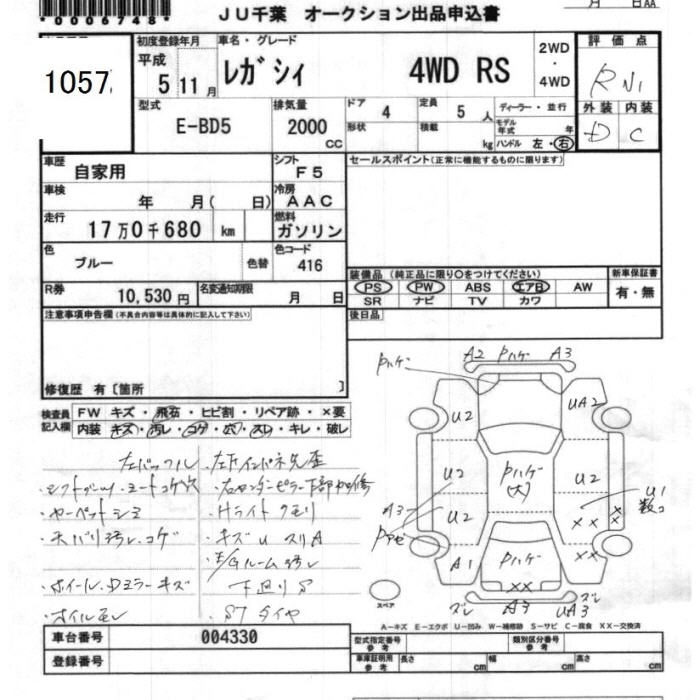 *0006748*
JU千葉 オークション出品申込書
月 日AA
1057
初度登録年月 車名・グレード
平成 5年11月 レガシィ 4WD RS
2WD・4WD
評価点
R
外装 内装
D C
型式 E-BD5
排気量 2000 CC
ドア 4
形状
定員 5 人
積載 kg
ディーラー・並行
モデル年式 年
ハンドル 左・右
車歴 自家用
シフト F5
車検 年 月( 日)
冷房 AAC
走行 17万0千680 km
燃料 ガソリン
色 ブルー 色替
色コード 416
R券 10,530円
名変通知期限 月 日
セールスポイント(正常に機能するものに限ります)
装備品 (純正品に限り○をつけてください)
PS PW ABS エアB AW
SR ナビ TV カワ
新車保証書
有・無
後日品
注意事項申告欄(不具合内容等は具体的に記入して下さい)
修復歴 有 [箇所 ]
検査員記入欄
FW キズ・飛石・ヒビ割・リペア跡・×要
内装 キズ・汚レ・コゲ・穴・スレ・キレ・破レ
カーペットシミ
Hライトクモリ
天バリ汚レ.コゲ
キズ U スリA
E/Gルーム汚レ
ホイール.Dミラーキズ
下廻りS
オイルモレ
Pハゲ A2 Pハゲ A3
U2 UA2
U2 Pハゲ(大) U2
A3 U2 U1数コ
A1 Pハゲ
×× ××
ズレ A3 UA3 ズレ
スペア
A―キズ E―エクボ U―凹み W―補修跡 S―サビ C―腐食 XX―交換済
車台番号 004330
登録番号
型式指定番号 参考
類別区分番号 参考
車庫証明用 参考
長さ cm 幅 cm 高さ cm